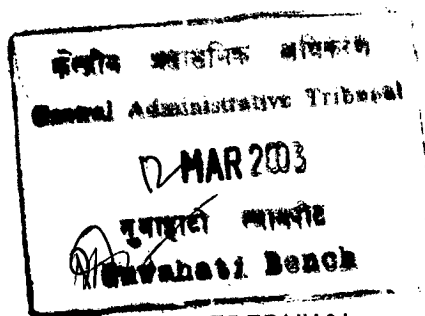 केन्द्रीय प्रशासनिक अधिकरण
Central Administrative Tribunal
12 MAR 2003
गुवाहाटी न्यायपीठ
Guwahati Bench